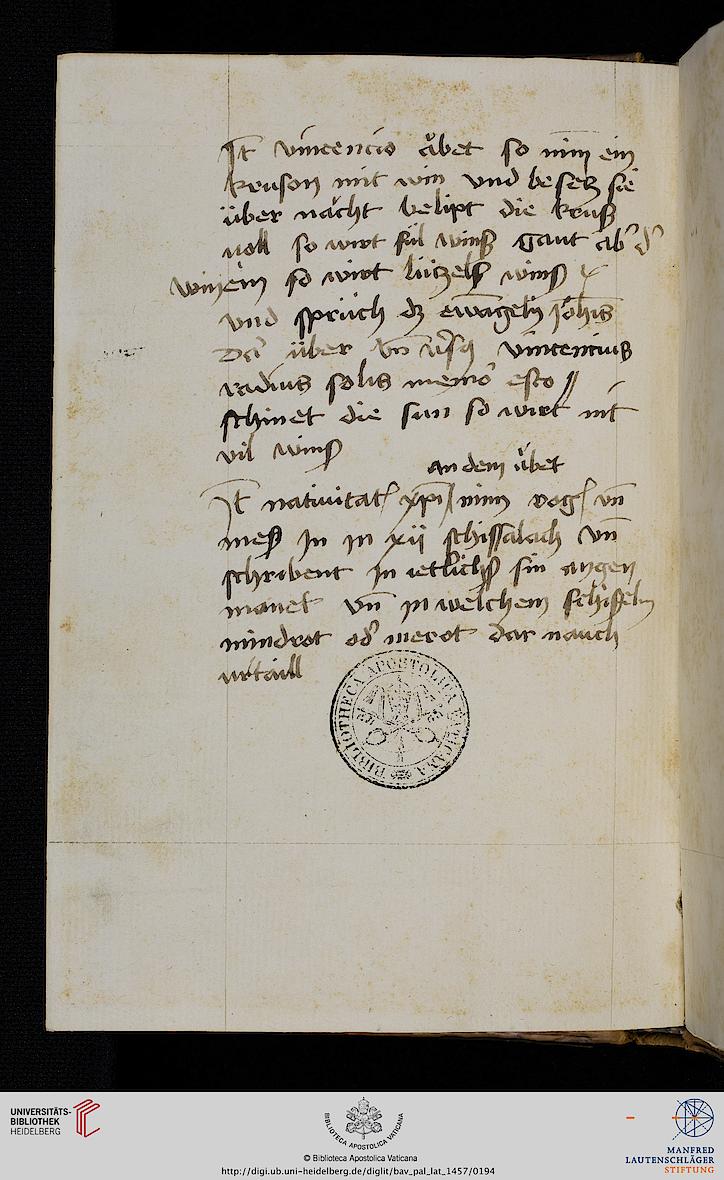 It vincencio åbet so nim ein
kruson mit win vnd besetz sie
über nácht belipt die kruß
voll so wirt fúl winß gaut ab d
winem so wirt lützelß winß
vnd sprüch dz ewāgely Johīs
Dar über vn̄ vincencius
radius solis memō esto //
schinet die sun so wirt nit
vil winß
an dem åbet
It nativitat xp̄i nim rog vn̄
meß In in xii schissalach vn̄
schribent In ietlichß sin aygen
manet vn̄ in welchem schißely
mindrot od merot dar nauch
urtaill
BIBLIOTHECA APOSTOLICA VATICANA
UNIVERSITÄTS-
BIBLIOTHEK
HEIDELBERG
BIBLIOTECA APOSTOLICA VATICANA
© Biblioteca Apostolica Vaticana
http://digi.ub.uni-heidelberg.de/diglit/bav_pal_lat_1457/0194
MANFRED
LAUTENSCHLÄGER
STIFTUNG